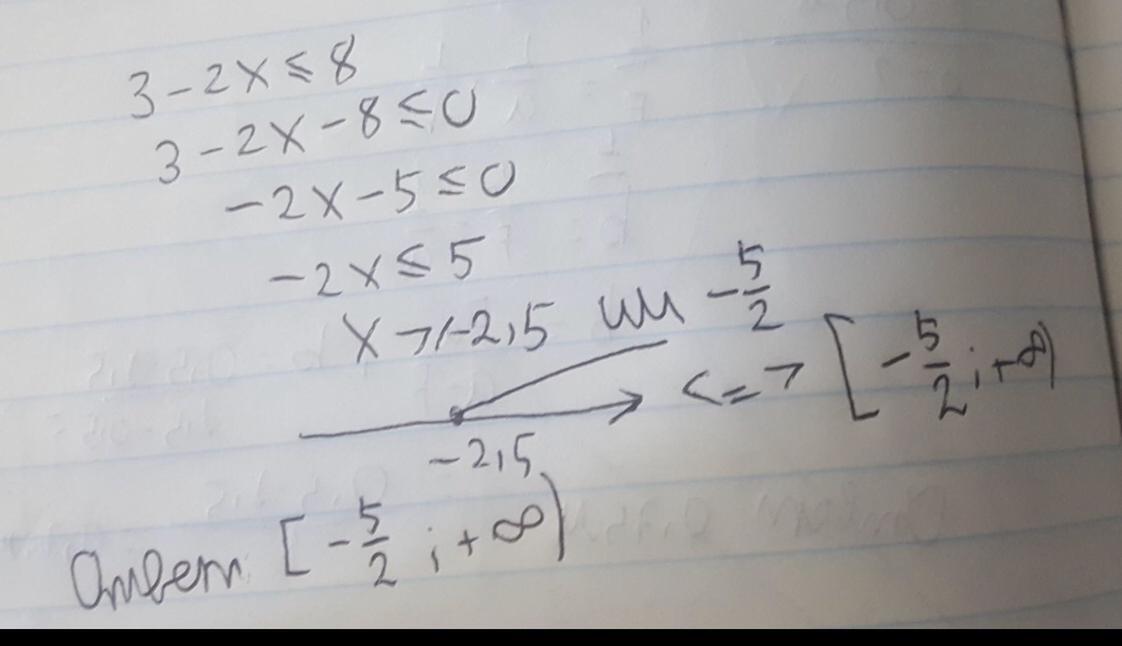 3-2x≤8
3-2x-8≤0
-2x-5≤0
-2x≤5
x≥-2,5 или -5/2
-2,5 <=> [-5/2;+∞)
Ответ [-5/2;+∞)